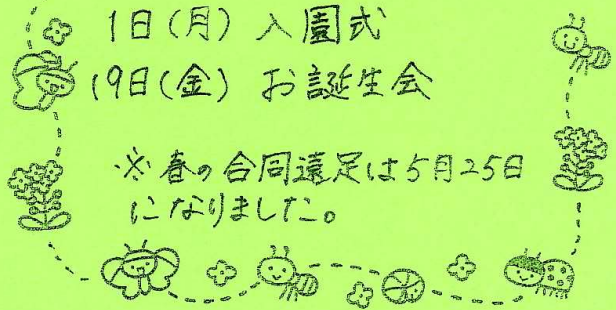 1日(月) 入園式
19日(金) お誕生会
※春の合同遠足は5月25日
になりました。